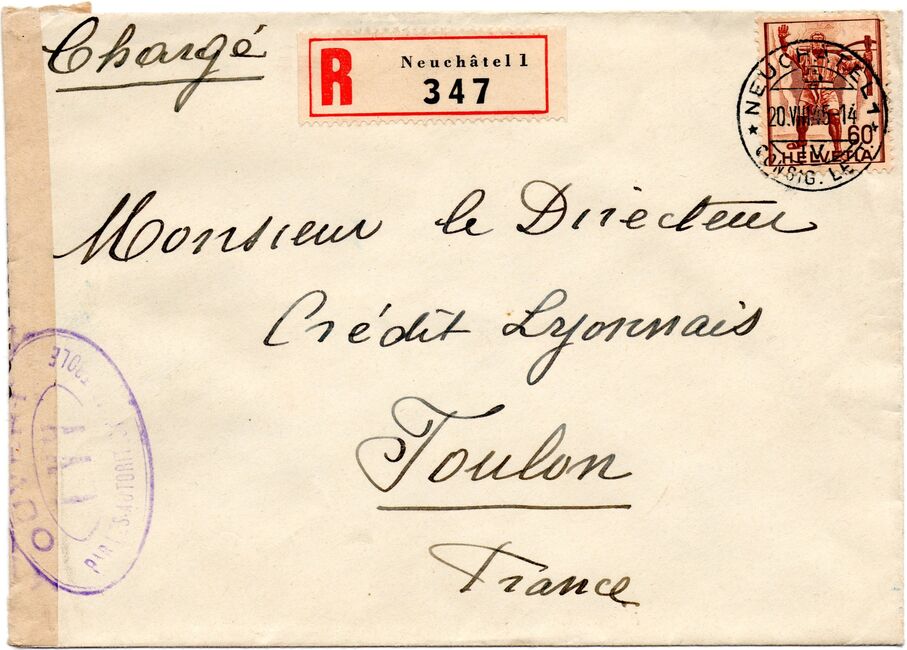 Chargé
R Neuchâtel 1
347
NEUCHATEL 1
20.VIII.45-14
IV
CONSIG. LE
60
HELVETIA
Monsieur le Directeur
Crédit Lyonnais
Toulon
France
OUVERT
PAR LES AUTORITÉS